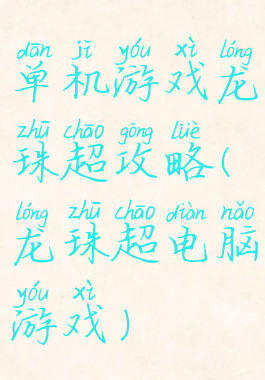 dān jī yóu xì lóng
单机游戏龙
zhū chāo gōng lüè
珠超攻略(
lóng zhū chāo diàn nǎo
龙珠超电脑
yóu xì
游戏)